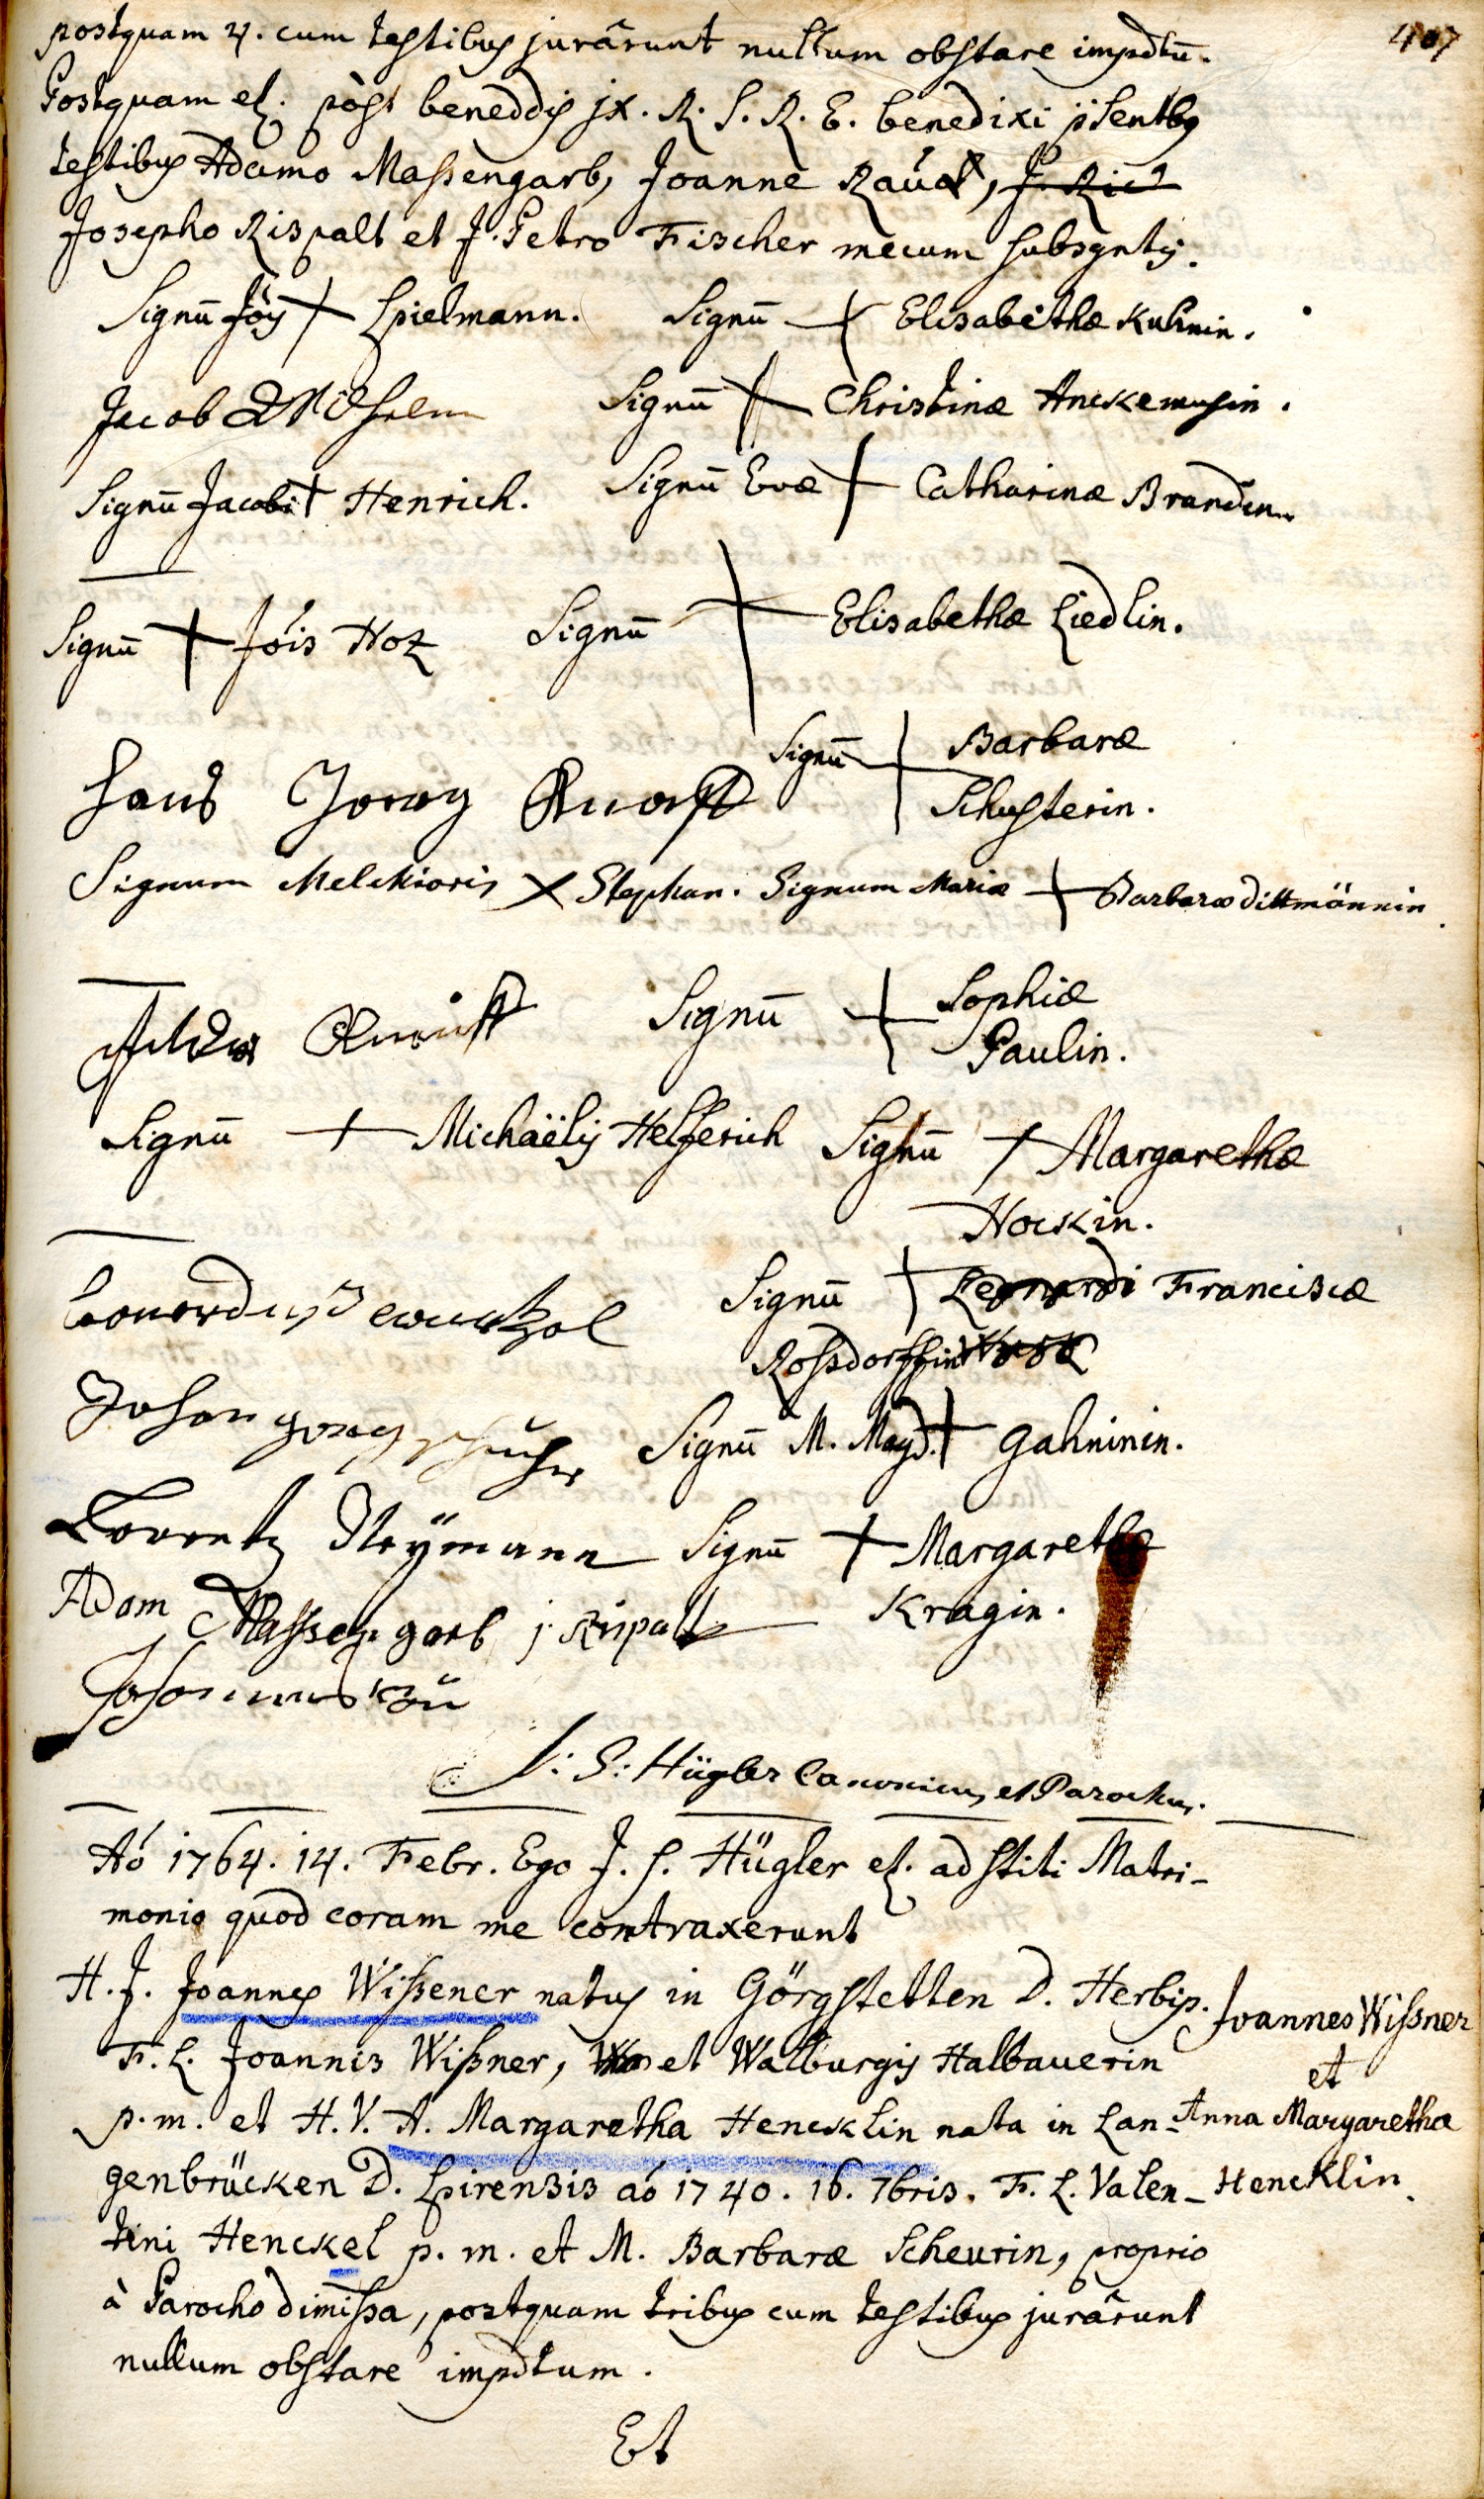 407
postquam 4. cum testibus jurârunt nullum obstare impdtū.
Postquam et. pòst beneddis jx. R. S. R. E. benedixi
testibus Adamo Maßengarb, Joanne Raù, J. Ric
Josepho Rispalt et J. Petro Fischer mecum subsgntis.
Signū Jōis + Spielmann. Signū + Elisabethæ Kuhnin.
Jacob Wilhelm Signū + Christinæ Anckemusin.
Signū Jacobi + Henrich. Signū Evæ + Catharinæ Brandin
Signū + Jóis Hoz Signū + Elisabethæ Liedlin.
Hans Jorg Signū + Barbaræ
Schusterin.
Signum Melchioris X Stephan. Signum Mariæ + Barbaræ dittmännin.
Signū + Sophiæ
Paulin.
Signū + Michaëlis Helferich Signū + Margarethæ
Hockin.
Signū + Leonardi Franciscæ
Roßdorffin
Johan georg Signū M. Magd. + gahninin.
Lorentz Neÿmann Signū + Margarethæ
Kragin.
Adam Massengarb j. Rispalt
Johannes Raü
J: S: Hügler Canonicus et Parochus.
Aó 1764. 14. Febr. Ego J. S. Hügler et. adstiti Matri-
monio quod coram me contraxerunt
H. J. Joannes Wißener natus in Görgstetten D. Herbip.
F. L. Joannis Wißner, et Walburgis Halbauerin
p. m. et H. V. A. Margaretha Hencklin nata in Lan-
genbrücken D. Spirensis aó 1740. 16. 7bris. F. L. Valen-
tini Henckel p. m. et M. Barbaræ Scheurin, proprio
à Parocho dimißa, postquam tribus cum testibus jurârunt
nullum obstare impdtum.
Et
Joannes Wißner
et
Anna Margaretha
Hencklin.